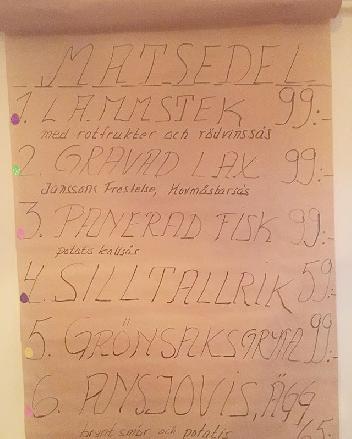 MATSEDEL
1. LAMMSTEK 99:-
med rotfrukter och rödvinssås
2. GRAVAD LAX 99:-
Janssons Frestelse, Hovmästarsås
3. PANERAD FISK 99:-
potatis kallsås
4. SILLTALLRIK 59:-
5. GRÖNSAKSGRYTA 99:-
6. ANSJOVIS, ÄGG
brynt smör och potatis 65:-